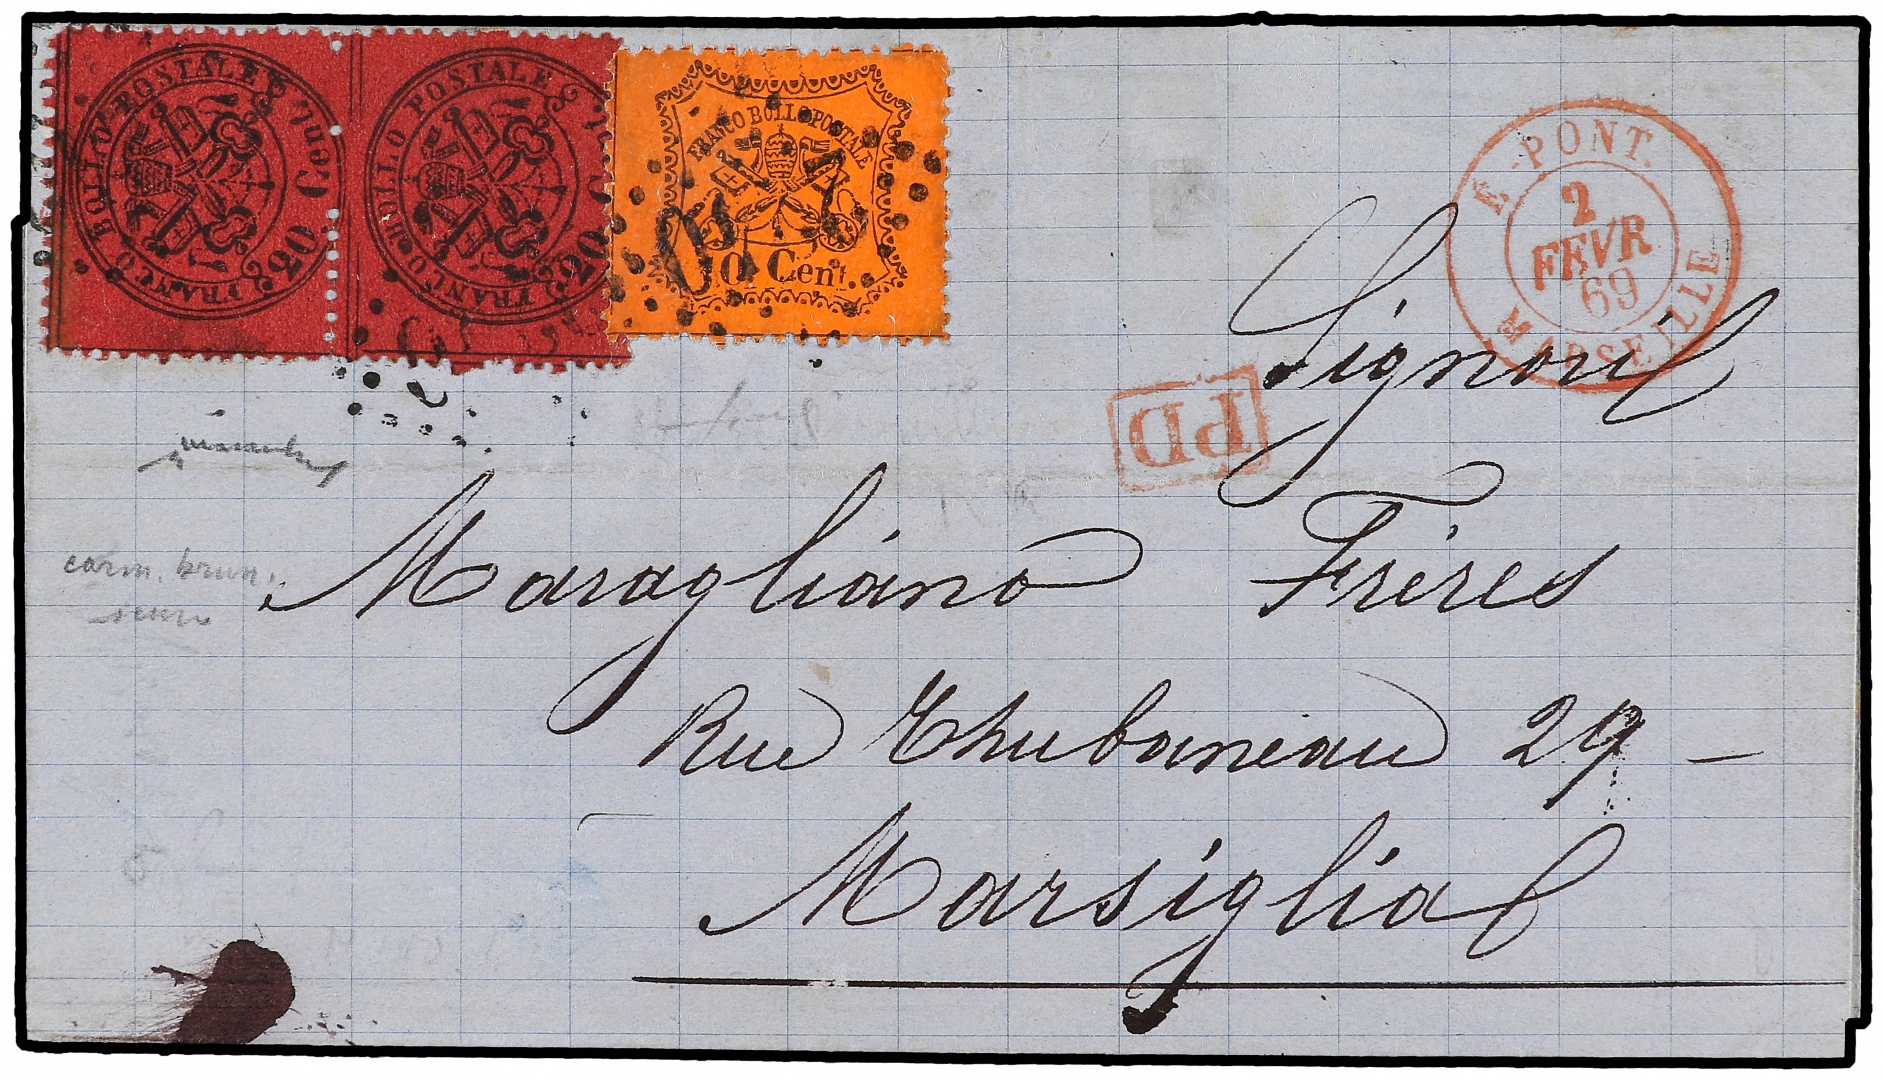 FRANCO BOLLO POSTALE
20 Cent.
FRANCO BOLLO POSTALE
20 Cent.
FRANCO BOLLO POSTALE
10 Cent.
E. PONT.
2
FEVR
69
MARSEILLE
PD
Signori
Maragliano Frères
Rue Thubaneau 29 -
Marsiglia
carm. brun.